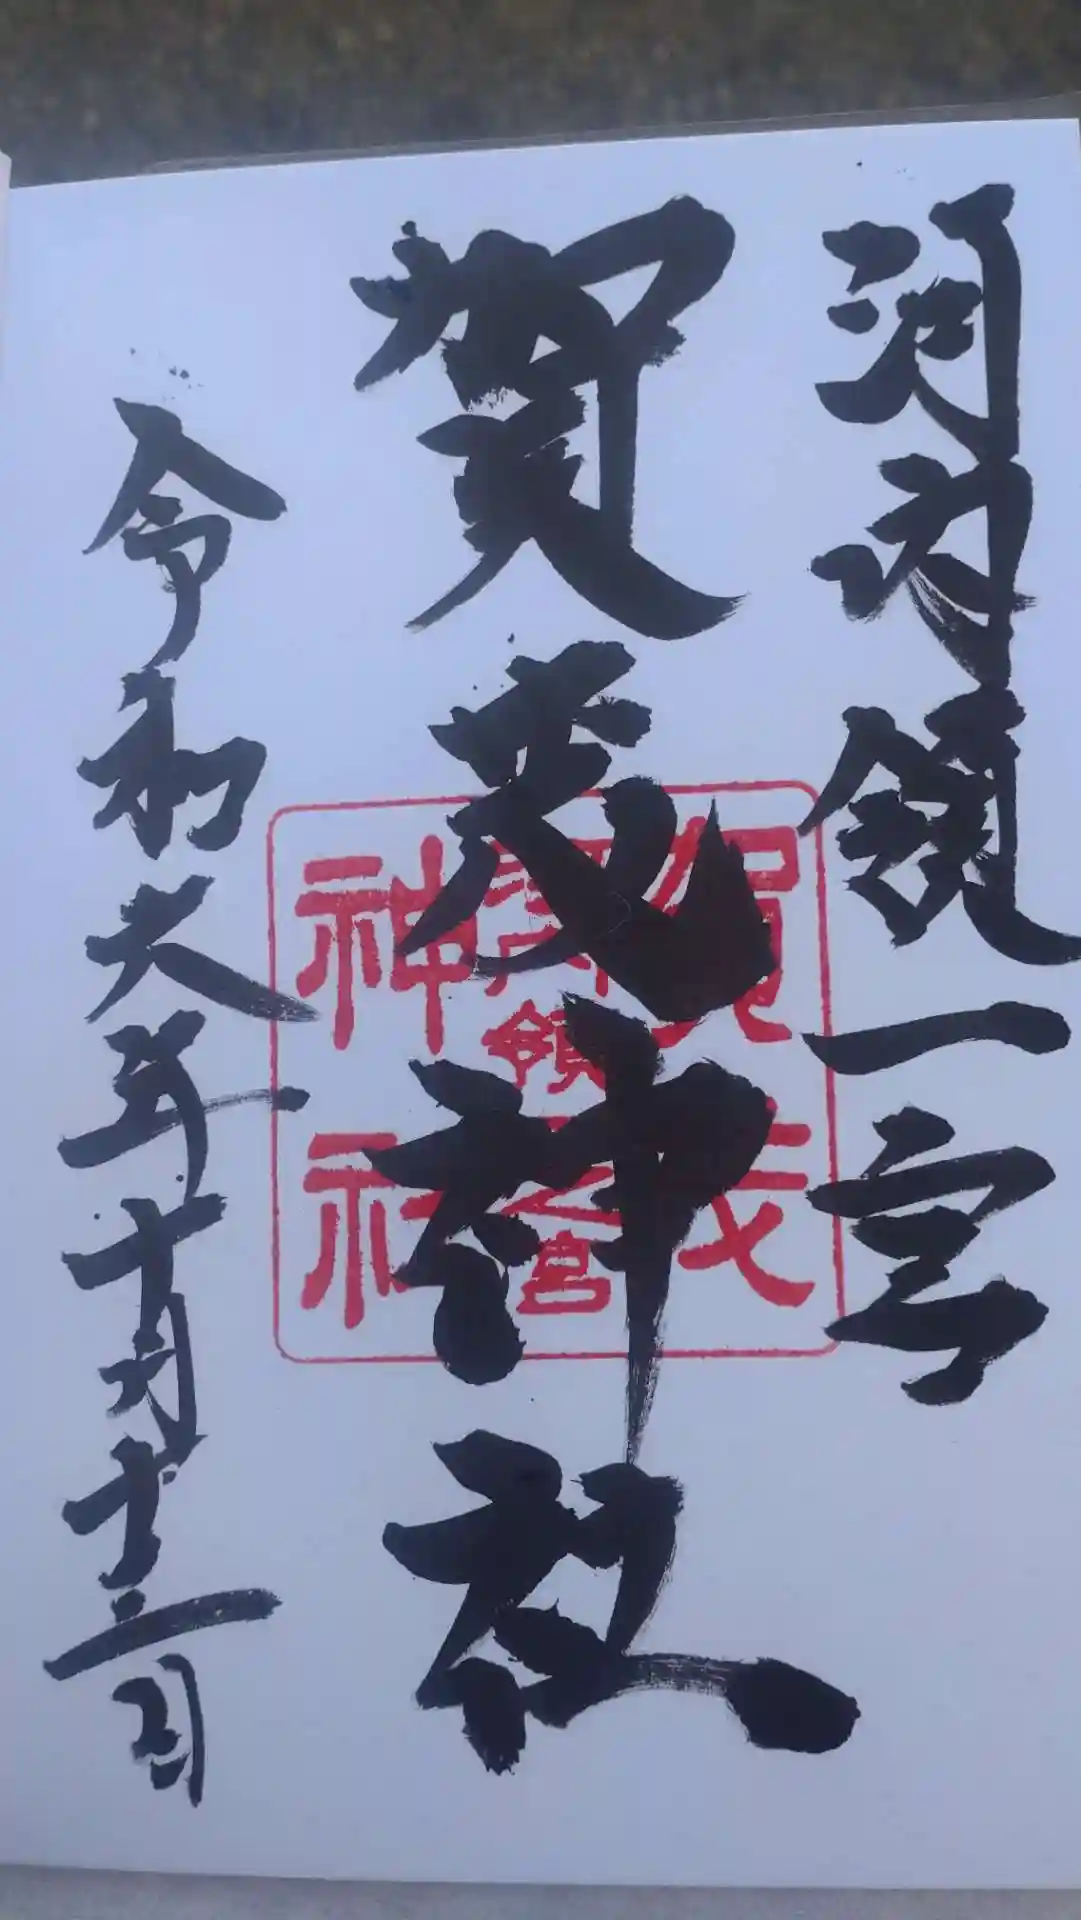 河内領一宮
賀茂神社
令和六年十月十二日
賀茂
領一之宮
神社